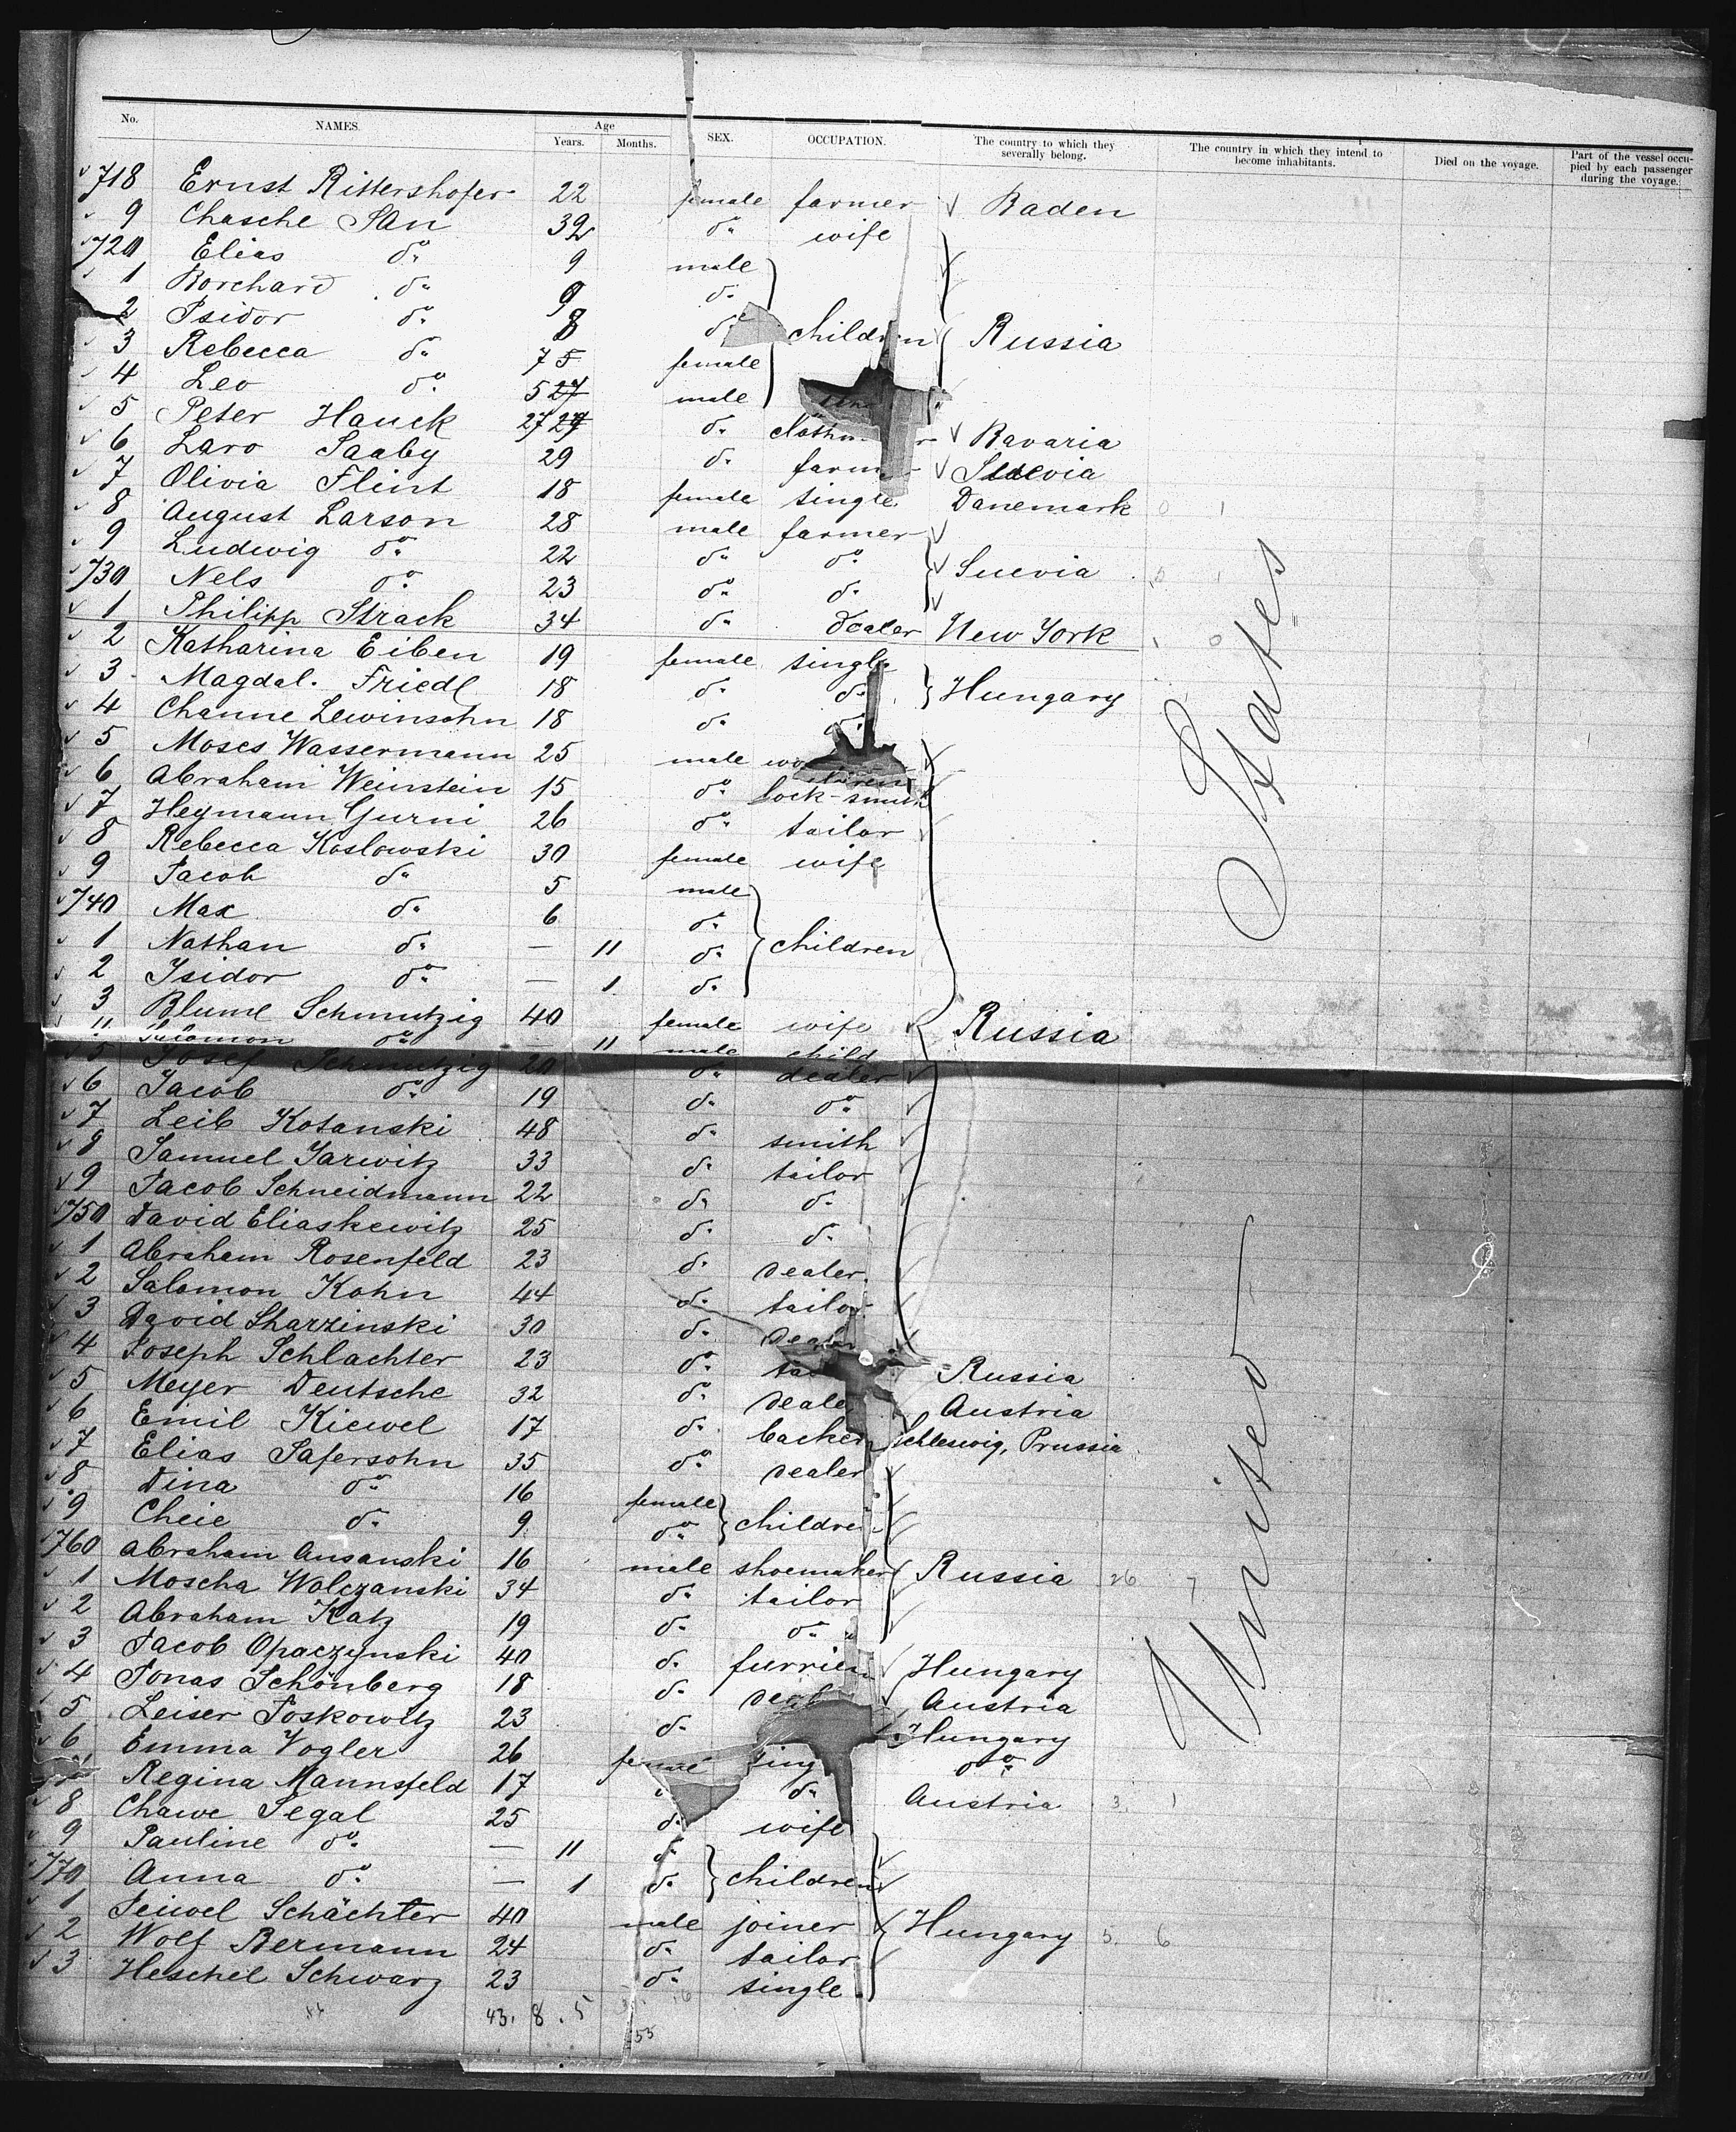 No. NAMES. Age Years. Months. SEX. OCCUPATION. The country to which they severally belong. The country in which they intend to become inhabitants. Died on the voyage. Part of the vessel occupied by each passenger during the voyage.
718 Ernst Rittershofer 22 female farmer Baden
9 Chasche San 32 do. wife
720 Elias do. 9 male
1 Borchard do. 9 do.
2 Isidor do. 8 do. children Russia
3 Rebecca do. 7 5 female
4 Leo do. 5 27 male
5 Peter Hauck 27 29 do. Bavaria
6 Laro Saaby 29 do. farmer Suevia
7 Olivia Flint 18 female single Danemark 0 1
8 August Larson 28 male farmer
9 Ludwig do. 22 do. do. Suevia
730 Nels do. 23 do. do.
1 Philipp Strack 34 do. dealer New York 1 0
2 Katharina Eiben 19 female single
3 Magdal. Friedl 18 do. do. Hungary
4 Channe Lewinsohn 18 do. do.
5 Moses Wassermann 25 male
6 Abraham Weinstein 15 do. lock-smith
7 Heymann Gurni 26 do. tailor
8 Rebecca Koslowski 30 female wife
9 Jacob do. 5 male
740 Max do. 6 do.
1 Nathan do. — 11 do. children
2 Isidor do. — 1 do.
3 Blume Schmutzig 40 female wife Russia
Salomon do. — 11 male child
5 Josef Schmutzig 20 do. dealer
6 Jacob do. 19 do. do.
7 Leib Kotanski 48 do. smith
8 Samuel Jarwitz 33 do. tailor
9 Jacob Schneidmann 22 do. do.
750 David Eliaskewitz 25 do. do.
1 Abraham Rosenfeld 23 do. dealer
2 Salomon Kohn 44 do. tailor
3 David Sharzinski 30 do. dealer
4 Joseph Schlachter 23 do. Russia
5 Meyer Deutsche 32 do. dealer Austria
6 Emil Kiewel 17 do. backer Schleswig, Prussia
7 Elias Safersohn 35 do. dealer
8 Dina do. 16 female
9 Cheie do. 9 do. children
760 Abraham Ausanski 16 male shoemaker Russia 26 7
1 Moscha Wolczanski 34 do. tailor
2 Abraham Katz 19 do. do.
3 Jacob Opaczynski 40 do. furrier Hungary
4 Jonas Schönberg 18 do. Austria
5 Leiser Joskowitz 23 do. Hungary
6 Emma Vogler 26 female do.
Regina Mannsfeld 17 do. Austria 3. 1
8 Chawe Segal 25 do. wife
9 Pauline do. — 11 do.
770 Anna do. — 1 do. children
1 Feiwel Schächter 40 male joiner Hungary 5. 6
2 Wolf Bermann 24 do. tailor
3 Heschel Schwarz 23 do. single
43. 8. 5
55
United States